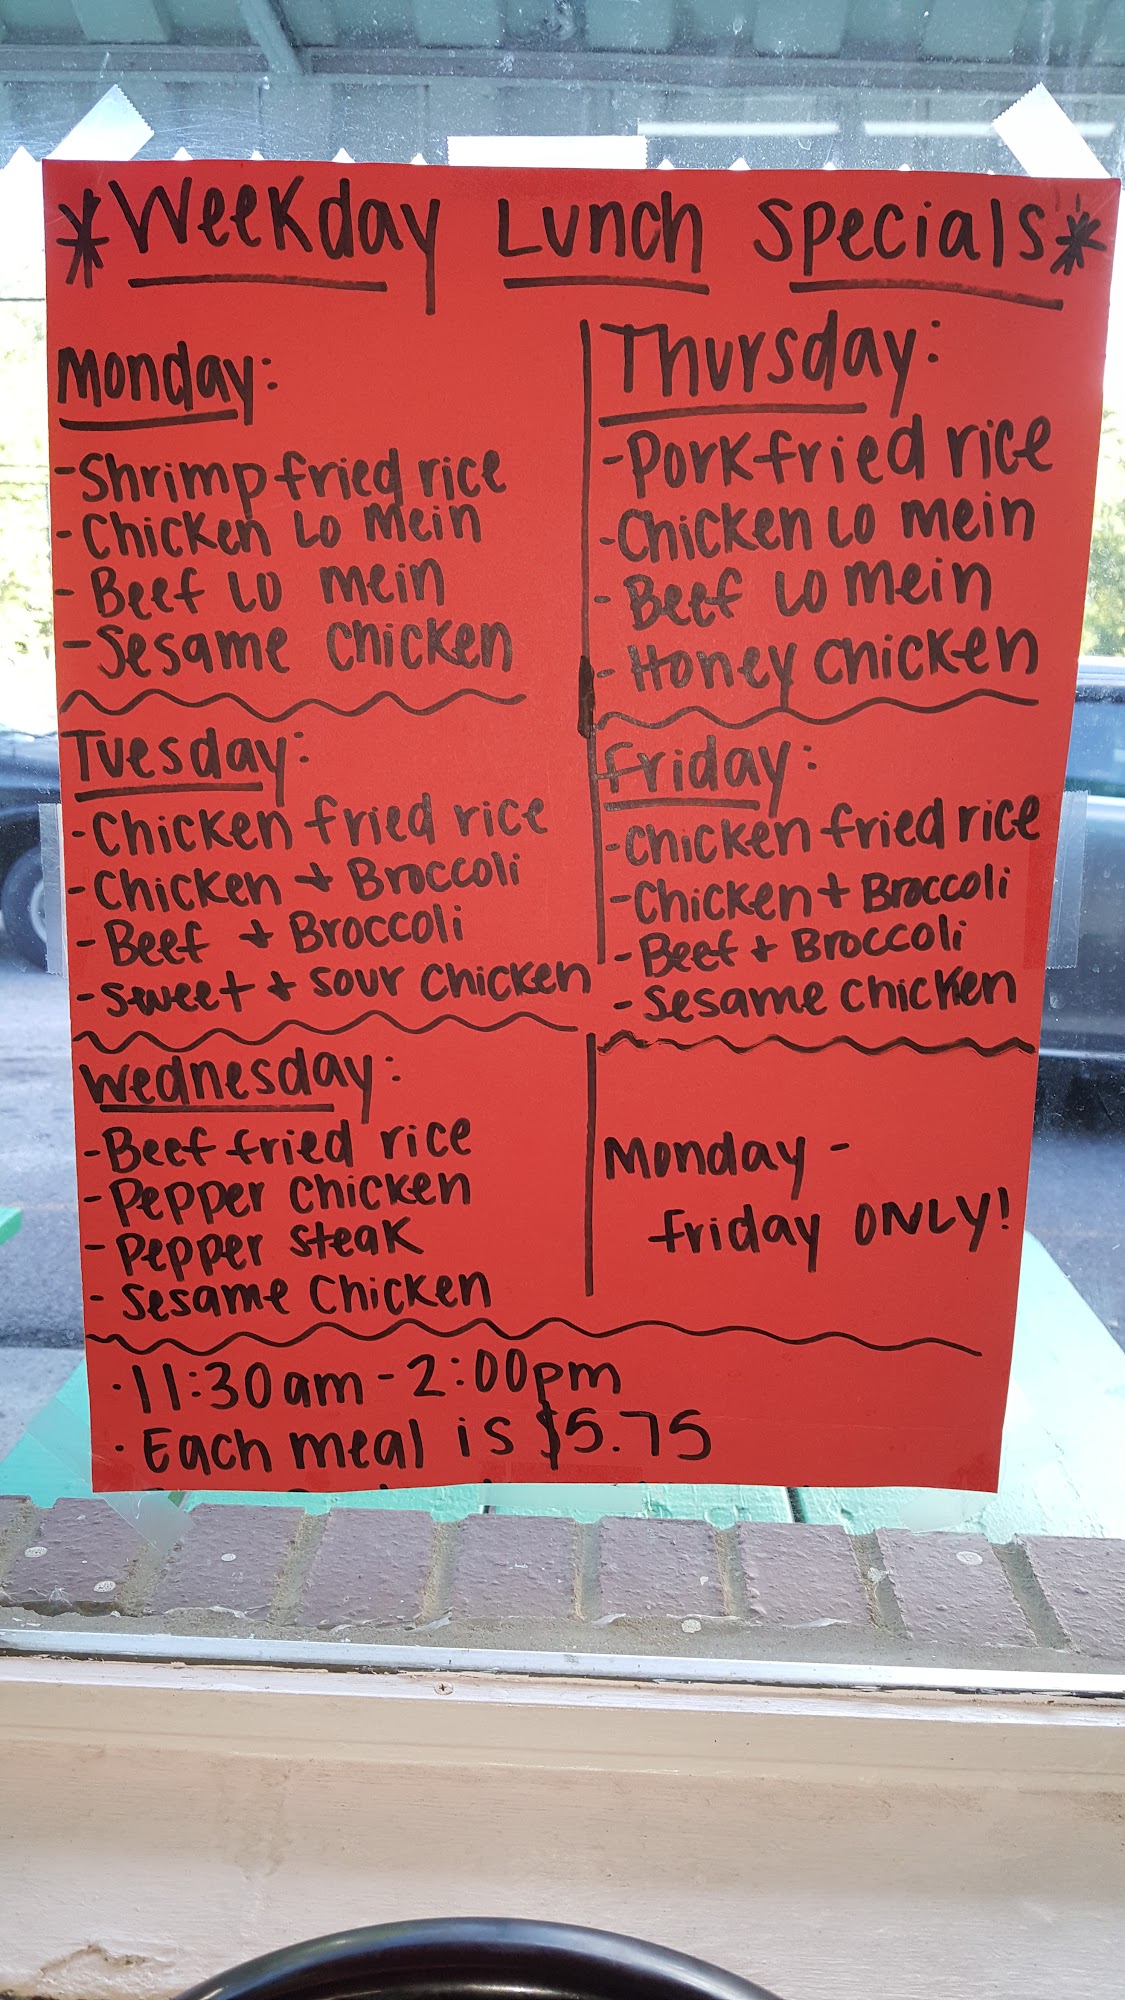 *Weekday Lunch Specials*
Monday:
-Shrimp fried rice
-Chicken Lo Mein
-Beef Lo mein
-Sesame chicken
Tuesday:
-Chicken fried rice
-Chicken + Broccoli
-Beef + Broccoli
-Sweet + Sour Chicken
Wednesday:
-Beef fried rice
-Pepper Chicken
-Pepper Steak
-Sesame Chicken
Thursday:
-Pork fried rice
-Chicken Lo mein
-Beef Lo mein
-Honey Chicken
Friday:
-Chicken fried rice
-Chicken + Broccoli
-Beef + Broccoli
-Sesame Chicken
Monday -
friday ONLY!
·11:30am - 2:00pm
·Each meal is $5.75